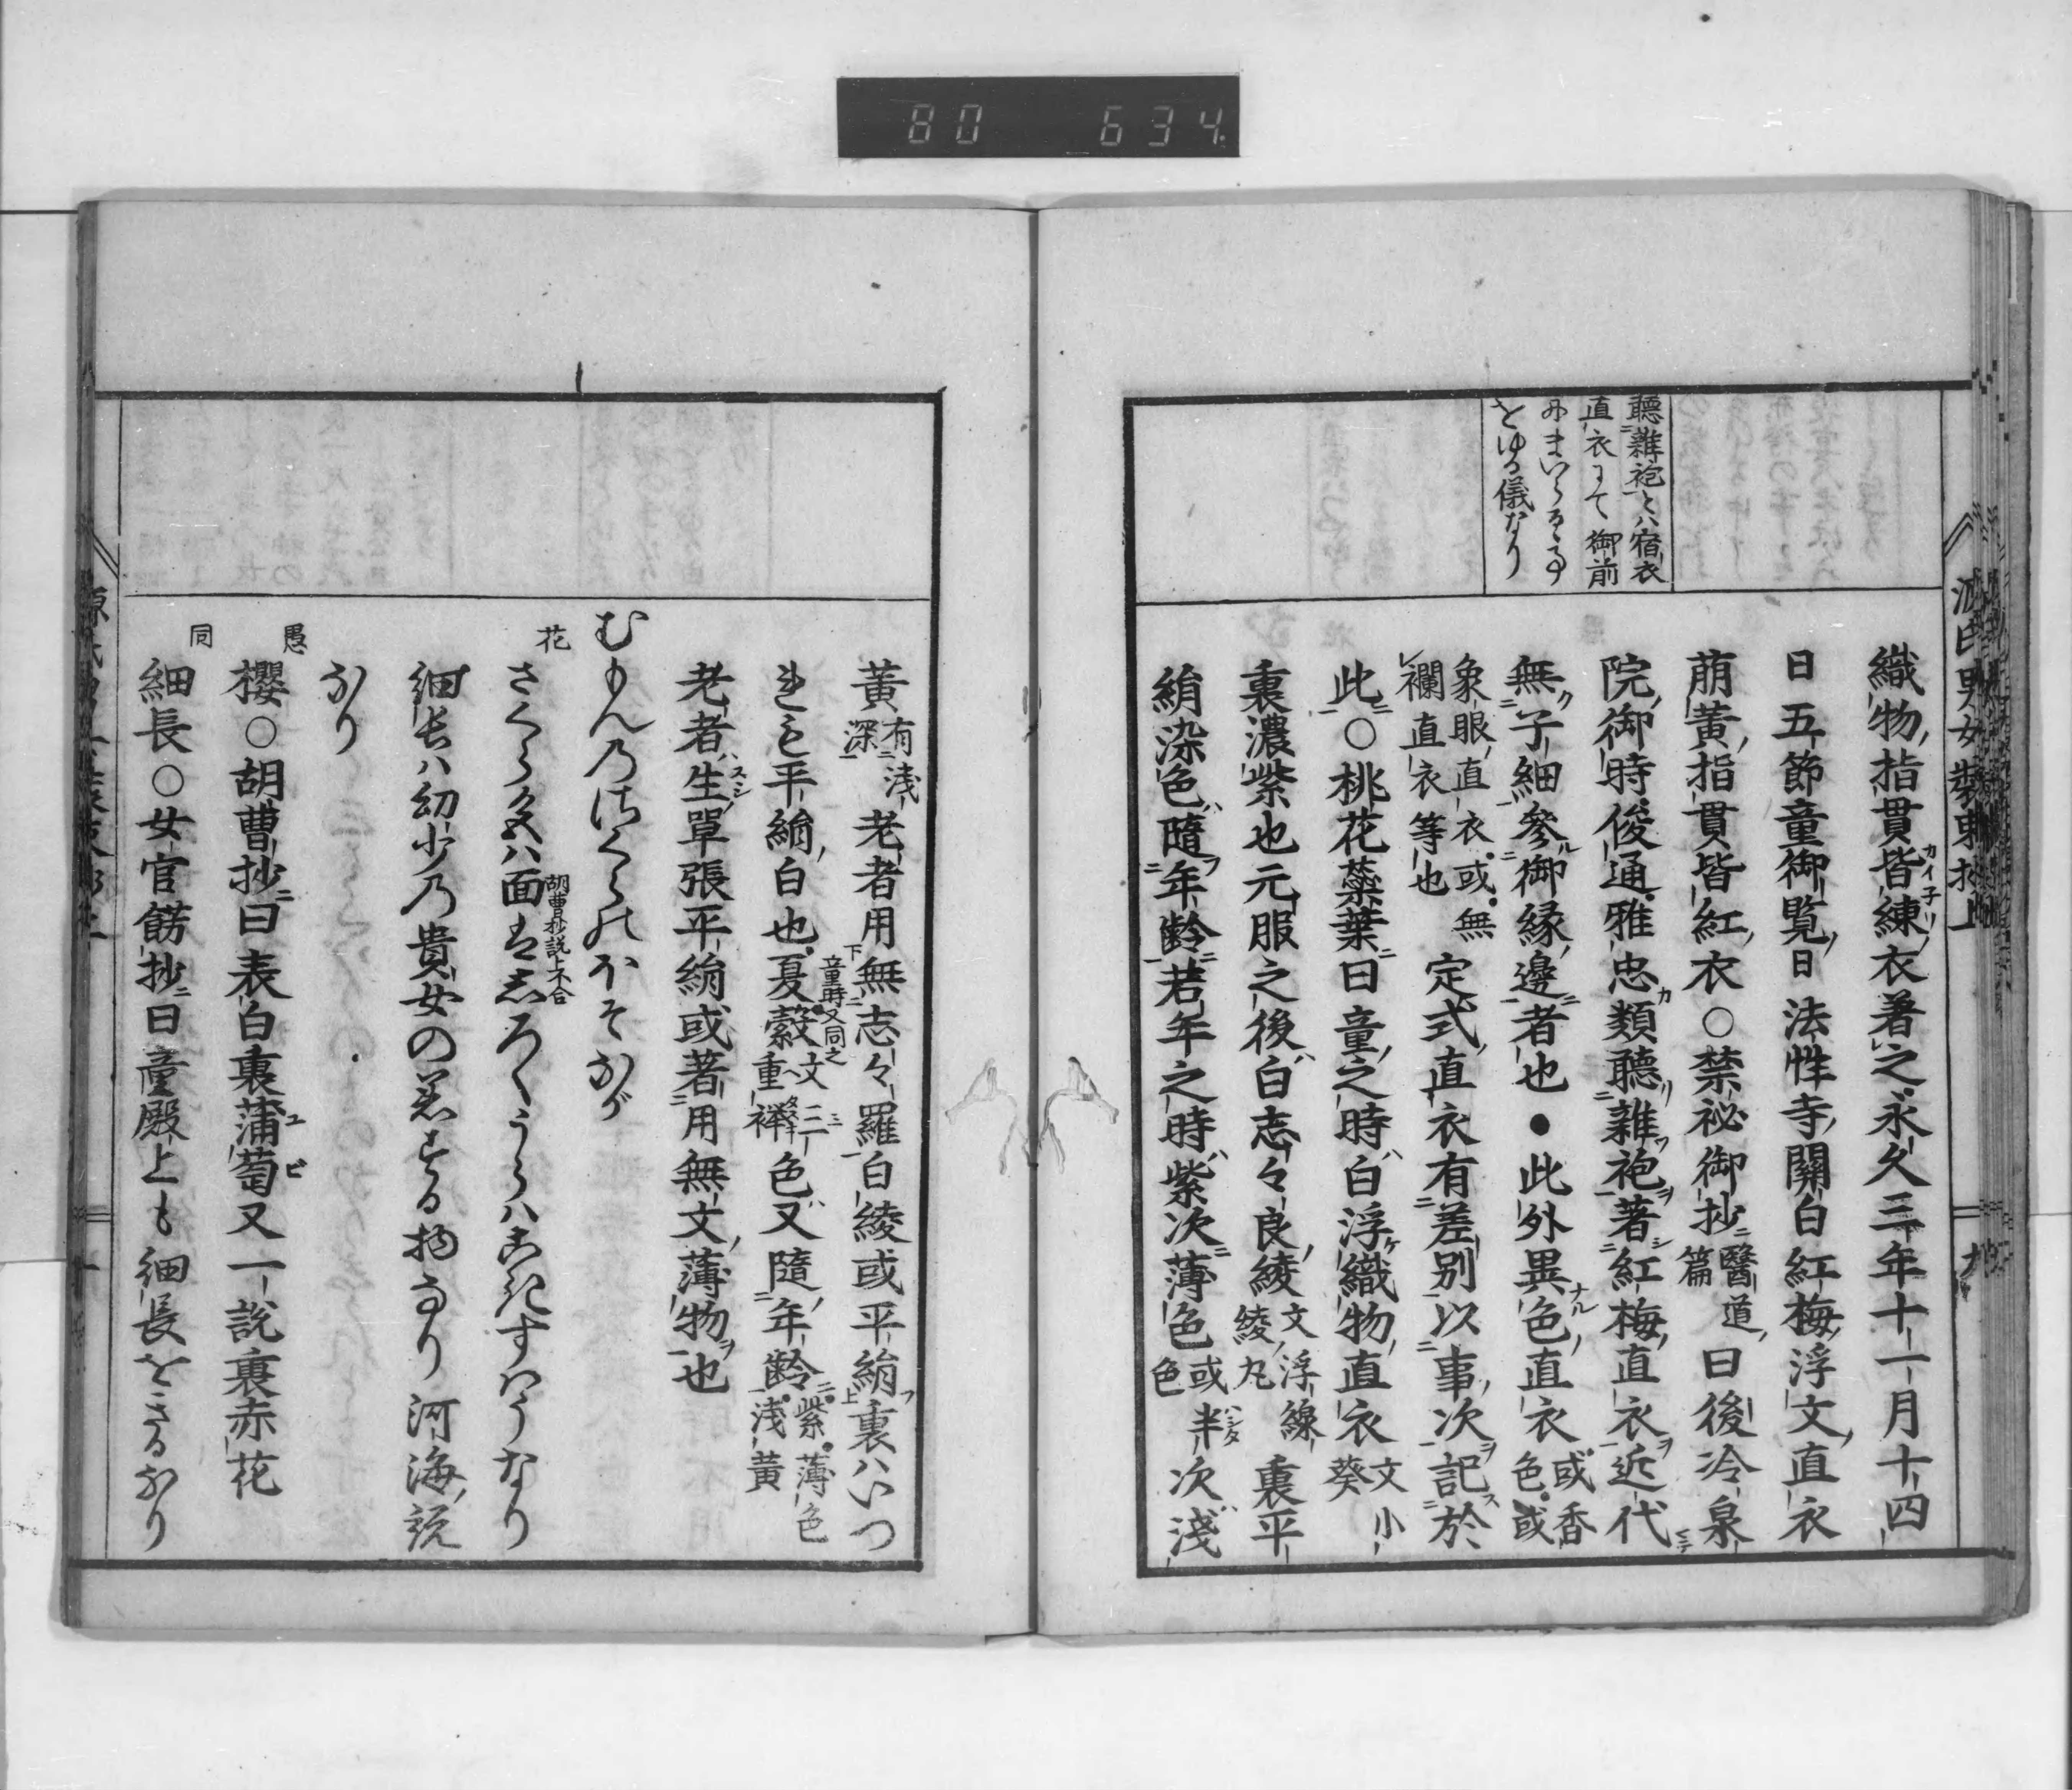 80 634
聴雜袍とハ宿衣
直衣にて御前
にまいらるゝ事
をゆる儀なり
織物指貫皆練衣著之永久三年十一月十四
日五節童御覧日法性寺關白紅梅浮文直衣
萠黄指貫皆紅衣○禁祕御抄醫道篇曰後冷泉
院御時俊通雅忠類聴雜袍著紅梅直衣近代
無子細參御縁邊者也●此外異色直衣或香色或
象眼直衣或無襴直衣等也定式直衣有差别以事次記於
此○桃花蘂葉曰童之時白浮織物直衣文小葵
裏濃紫也元服之後白志々良綾文浮線綾丸裏平
絹染色隨年齢若年之時紫次薄色或半色次淺
黄有淺深老者用無志々羅白綾或平絹裏ハいつ
れも平絹白也夏縠文三重襷色又隨年齢紫薄色淺黄
童時又同之
老者生單張平絹或著用無文薄物也
むもんのさくらのほそなが
花
さくら色ハ面はしろくうらハあきすハうなり
胡曹抄説ト不合
細長ハ幼少の貴女の着する物なり河海説
なり
愚
櫻○胡曹抄曰表白裏蒲萄又一説裏赤花
同
細長○女官餝抄曰童殿上も細長をきるなり